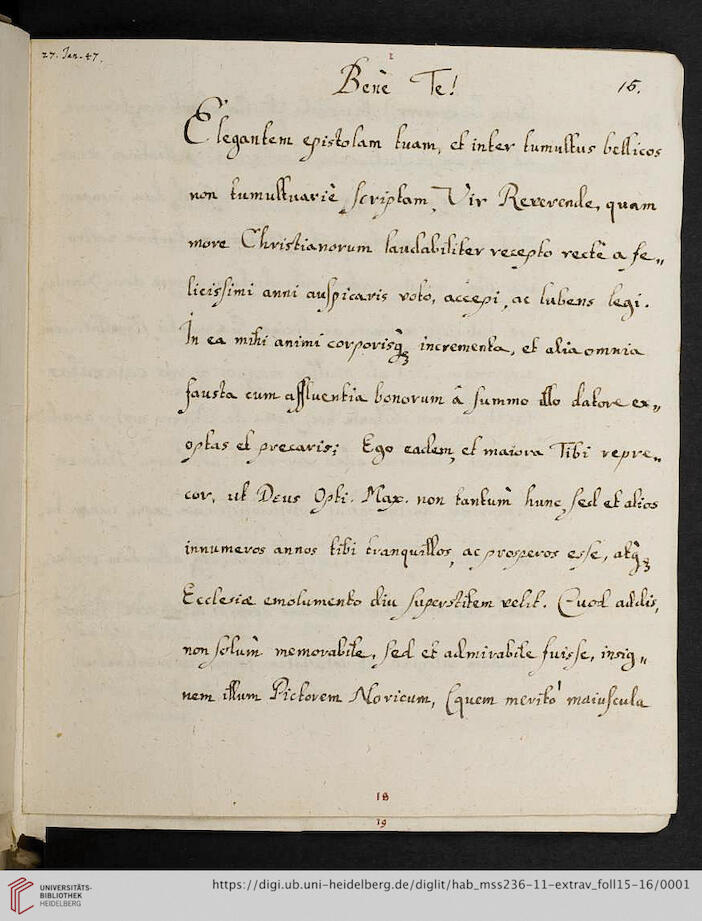 27. Jan. 47.
1
Benè Te!
15.
Elegantem epistolam tuam, et inter tumultus bellicos
non tumultuariè scriptam, Vir Reverende, quam
more Christianorum laudabiliter recepto rectè a fe„
licissimi anni auspicaris voto, accepi, ac lubens legi.
In ea mihi animi corporisq́ꝫ incrementa, et alia omnia
fausta cum affluentia bonorum â summo illo datore ex„
optas et precaris; Ego eadem, et maiora Tibi repre„
cor, ut Deus Opti. Max. non tantum̀ hunc, sed et alios
innumeros annos tibi tranquillos, ac prosperos esse, atq́ꝫ
Ecclesiæ emolumento diu superstitem velit. Quod addis,
non solum̀ memorabile, sed et admirabile fuisse, insig„
nem illum Pictorem Noricum, (quem meritò maiuscula
18
19
UNIVERSITÄTS-
BIBLIOTHEK
HEIDELBERG
https://digi.ub.uni-heidelberg.de/diglit/hab_mss236-11-extrav_foll15-16/0001